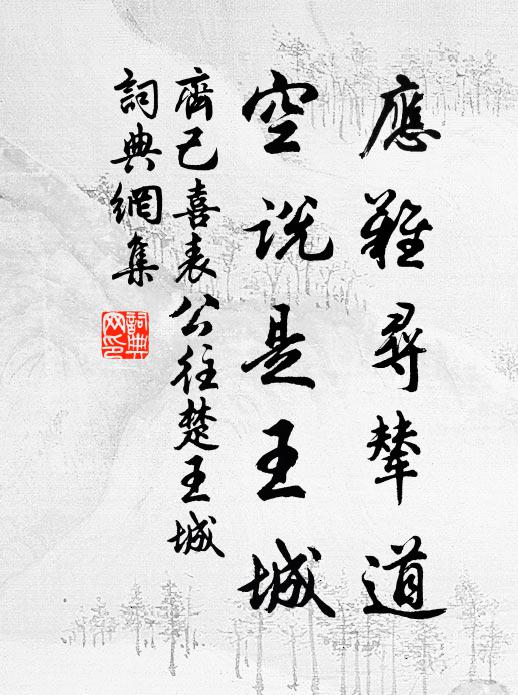 應難尋輦道
空說是王城
齊己喜表公往楚王城
詞典網集
詞典網印